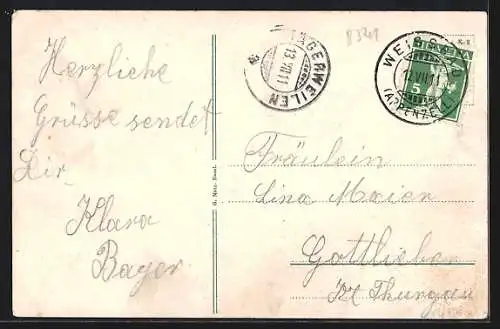 Herzliche
Grüsse sendet
Dir
Klara
Bayer
G. Metz, Basel.
TÄGERWEILEN
13.VII.11
8321
WEISSBAD
12.VII.11
(APPENZELL)
HELVETIA
5
Fräulein
Lina Maier
Gottlieben
Kt Thurgau